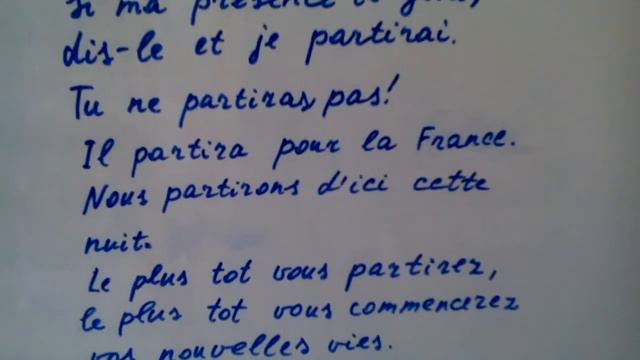 si ma présence te gêne,
dis-le et je partirai.
Tu ne partiras pas!
Il partira pour la France.
Nous partirons d'ici cette
nuit.
Le plus tot vous partirez,
le plus tot vous commencerez
vos nouvelles vies.